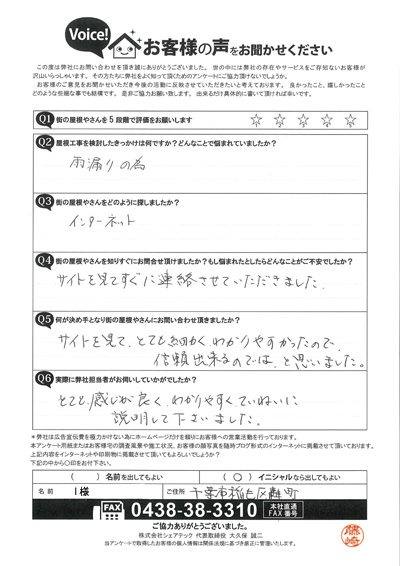 Voice!
お客様の声をお聞かせください
この度は弊社にお問い合わせを頂き誠にありがとうございました。世の中には弊社の存在やサービスをご存知ないお客様が
沢山いらっしゃいます。その方たちに弊社をよく知って頂くためのアンケートにご協力頂けないでしょうか。
お客様のご意見をお聞かせいただき今後の活動に反映させていただきたいと考えております。良かったこと、嬉しかったこと
どのような些細な事でも結構です。是非ご協力お願い致します。出来るだけ具体的に書いて頂ければ幸いです。
Q1 街の屋根やさんを5段階で評価をお願いします ☆ ☆ ☆ ☆ ☆
Q2 屋根工事を検討したきっかけは何ですか？どんなことで悩まれていましたか？
雨漏りの為
Q3 街の屋根やさんをどのように探しましたか？
インターネット
Q4 街の屋根やさんを知りすぐにお問合せ頂けましたか？もし悩まれたとしたらどんなことがご不安でしたか？
サイトを見てすぐに連絡させていただきました。
Q5 何が決め手となり街の屋根やさんにお問い合わせ頂きましたか？
サイトを見て、とても細かく、わかりやすかったので、
信頼出来るのでは、と思いました。
Q6 実際に弊社担当者がお伺いしていかがでしたか？
とても、感じが良く、わかりやすくていねいに
説明して下さいました。
＊弊社は広告宣伝費を極力かけない為にホームページだけを頼りにお客様への営業活動を行っております。
本アンケート用紙またはお客様宅の調査風景や施工状況、お客様の顔写真を随時ブログ形式のインターネットに掲載させて頂いております。
上記内容をインターネットや印刷物に掲載させて頂いてもよろしいでしょうか？
下記の中から〇印をお付け下さい。
（　）名前を出してもよい （〇）イニシャルなら出してもよい
名前 I様 ご住所 千葉市稲毛区
FAX 0438-38-3310 本社直通 FAX番号
ご協力ありがとうございました。
株式会社シェアテック 代表取締役 大久保 誠二
当アンケートで取得したお客様の個人情報は関係法規に基づき厳正に管理いたします。
藤崎